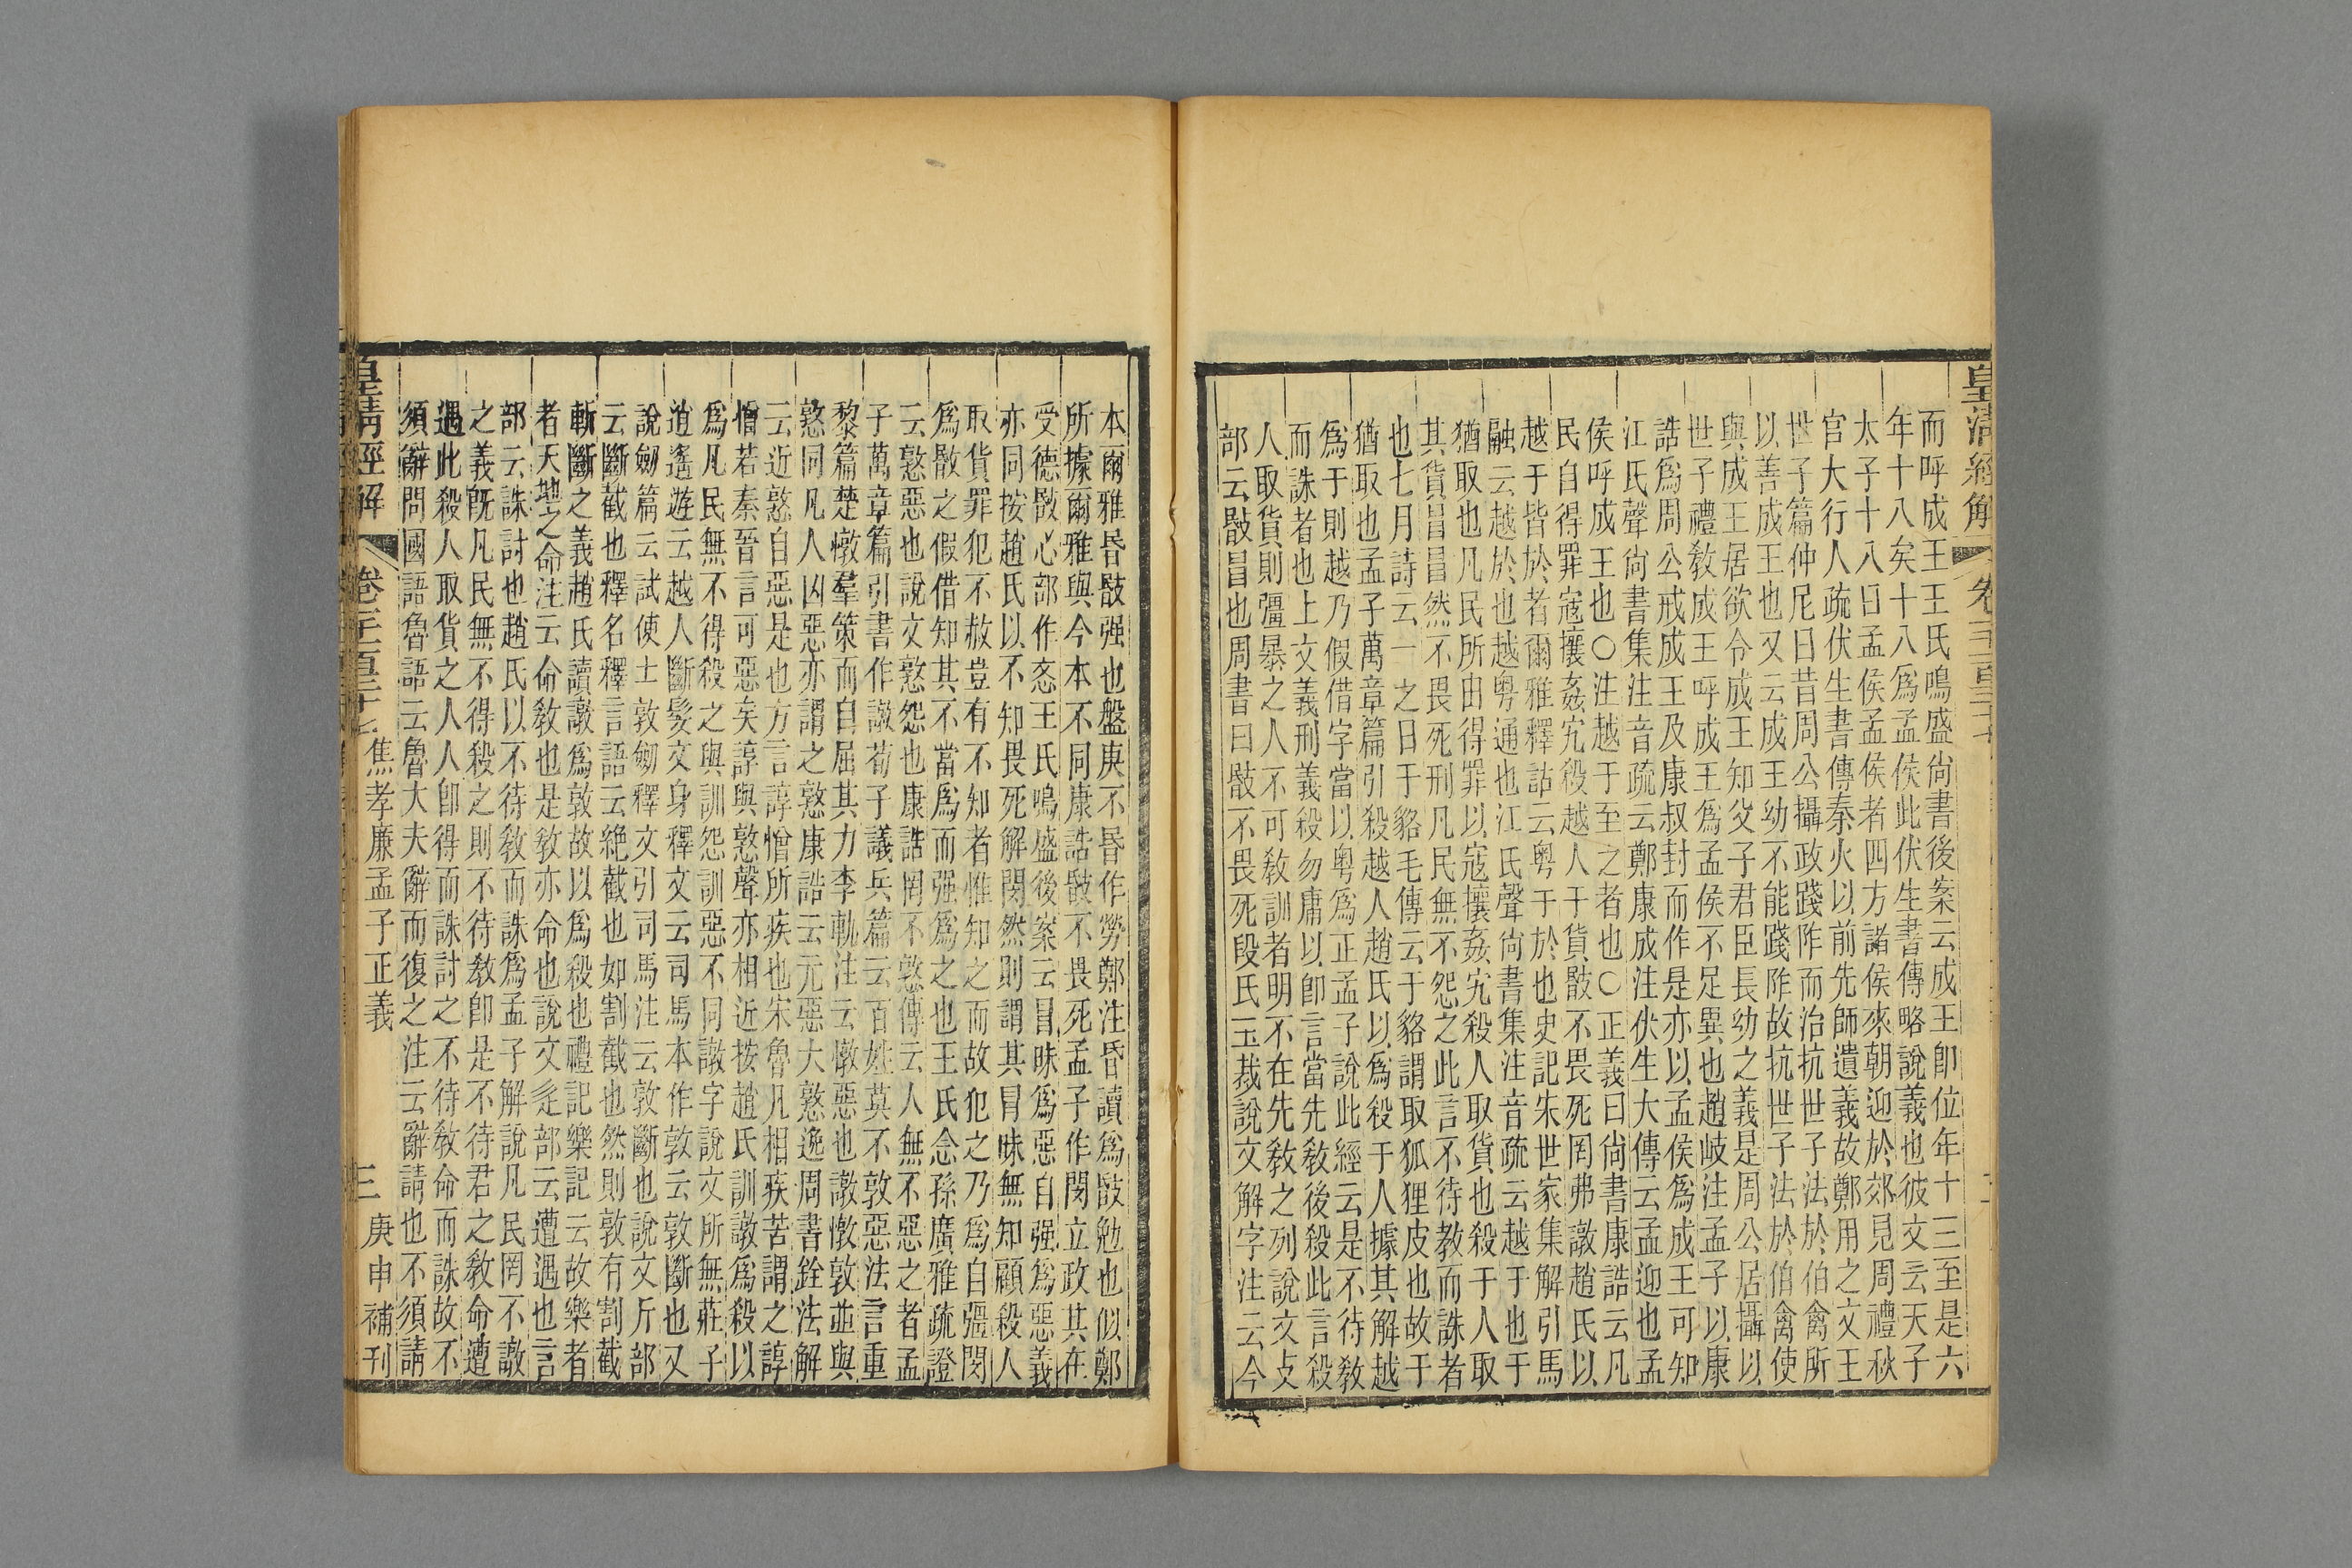 皇清經解
而呼成王王氏鳴盛尙書後案云成王卽位年十三至是六
年十八矣十八爲孟侯此伏生書傳略說義也彼文云天子
太子十八曰孟侯孟侯者四方諸侯來朝迎於郊見周禮秋
官大行人疏伏生書傳秦火以前先師遺義故鄭用之文王
世子篇仲尼曰昔周公攝政踐阼而治抗世子法於伯禽所
以善成王也又云成王幼不能踐阼故抗世子法於伯禽使
與成王居欲令成王知父子君臣長幼之義是周公居攝以
世子禮敎成王呼成王爲孟侯不足異也趙岐注孟子以康
誥爲周公戒成王及康叔封而作是亦以孟侯爲成王可知
江氏聲尙書集注音疏云鄭康成注伏生大傳云孟迎也孟
侯呼成王也○注越于至之者也○正義曰尙書康誥云凡
民自得罪寇攘姦宄殺越人于貨暋不畏死罔弗譈趙氏以
越于皆於者爾雅釋詁云粤于於也史記朱世家集解引馬
融云越於也越粤通也江氏聲尙書集注音疏云越于也于
猶取也凡民所由得罪以寇攘姦宄殺人取貨也殺于人取
其貨昌昌然不畏死刑凡民無不怨之此言不待教而誅者
也七月詩云一之日于貉毛傳云于貉謂取狐狸皮也故于
猶取也孟子萬章篇引殺越人趙氏以爲殺于人據其解越
爲于則越乃假借字當以粤爲正孟子說此經云是不待敎
而誅者也上文義刑義殺勿庸以卽言當先敎後殺此言殺
人取貨則彊暴之人不可敎訓者明不在先敎之列說文攴
部云暋冒也周書曰暋不畏死段氏玉裁說文解字注云今
本爾雅昬暋强也盤庚不昬作勞鄭注昬讀爲暋勉也似鄭
所據爾雅與今本不同康誥暋不畏死孟子作閔立政其在
受德暋心部作忞王氏鳴盛後案云冒昧爲惡自强爲惡義
亦同按趙氏以不知畏死解閔然則謂其冒昧無知顧殺人
取貨罪犯不赦豈有不知者惟知之而故犯之乃爲自彊閔
爲暋之假借知其不當爲而强爲之也王氏念孫廣雅疏證
云憝惡也說文憝怨也康誥罔不憝傳云人無不惡之者孟
子萬章篇引書作譈荀子議兵篇云百姓莫不敦惡法言重
黎篇楚憞羣策而自屈其力李軌注云憞惡也譈憞敦並與
憝同凡人凶惡亦謂之憝康誥云元惡大憝逸周書銓法解
云近憝自惡是也方言諄憎所疾也宋魯凡相疾苦謂之諄
憎若秦晉言可惡矣諄與憝聲亦相近按趙氏訓譈爲殺以
爲凡民無不得殺之與訓怨訓惡不同譈字說文所無莊子
逍遙遊云越人斷髮文身釋文云司馬本作敦云敦斷也又
說劒篇云試使士敦劒釋文引司馬注云敦斷也說文斤部
云斷截也釋名釋言語云絶截也如割截也然則敦有割截
斬斷之義趙氏讀譈爲敦故以爲殺也禮記樂記云故樂者
者天地之命注云命敎也是敎亦命也說文辵部云遭遇也言
部云誅討也趙氏以不待敎而誅爲孟子解說凡民罔不譈
之義旣凡民無不得殺之則不待敎卽是不待君之敎命遭
遇此殺人取貨之人人卽得而誅討之不待敎命而誅故不
須辭問國語魯語云魯大夫辭而復之注云辭請也不須請
皇清經解 焦孝廉孟子正義 三 庚申補刊